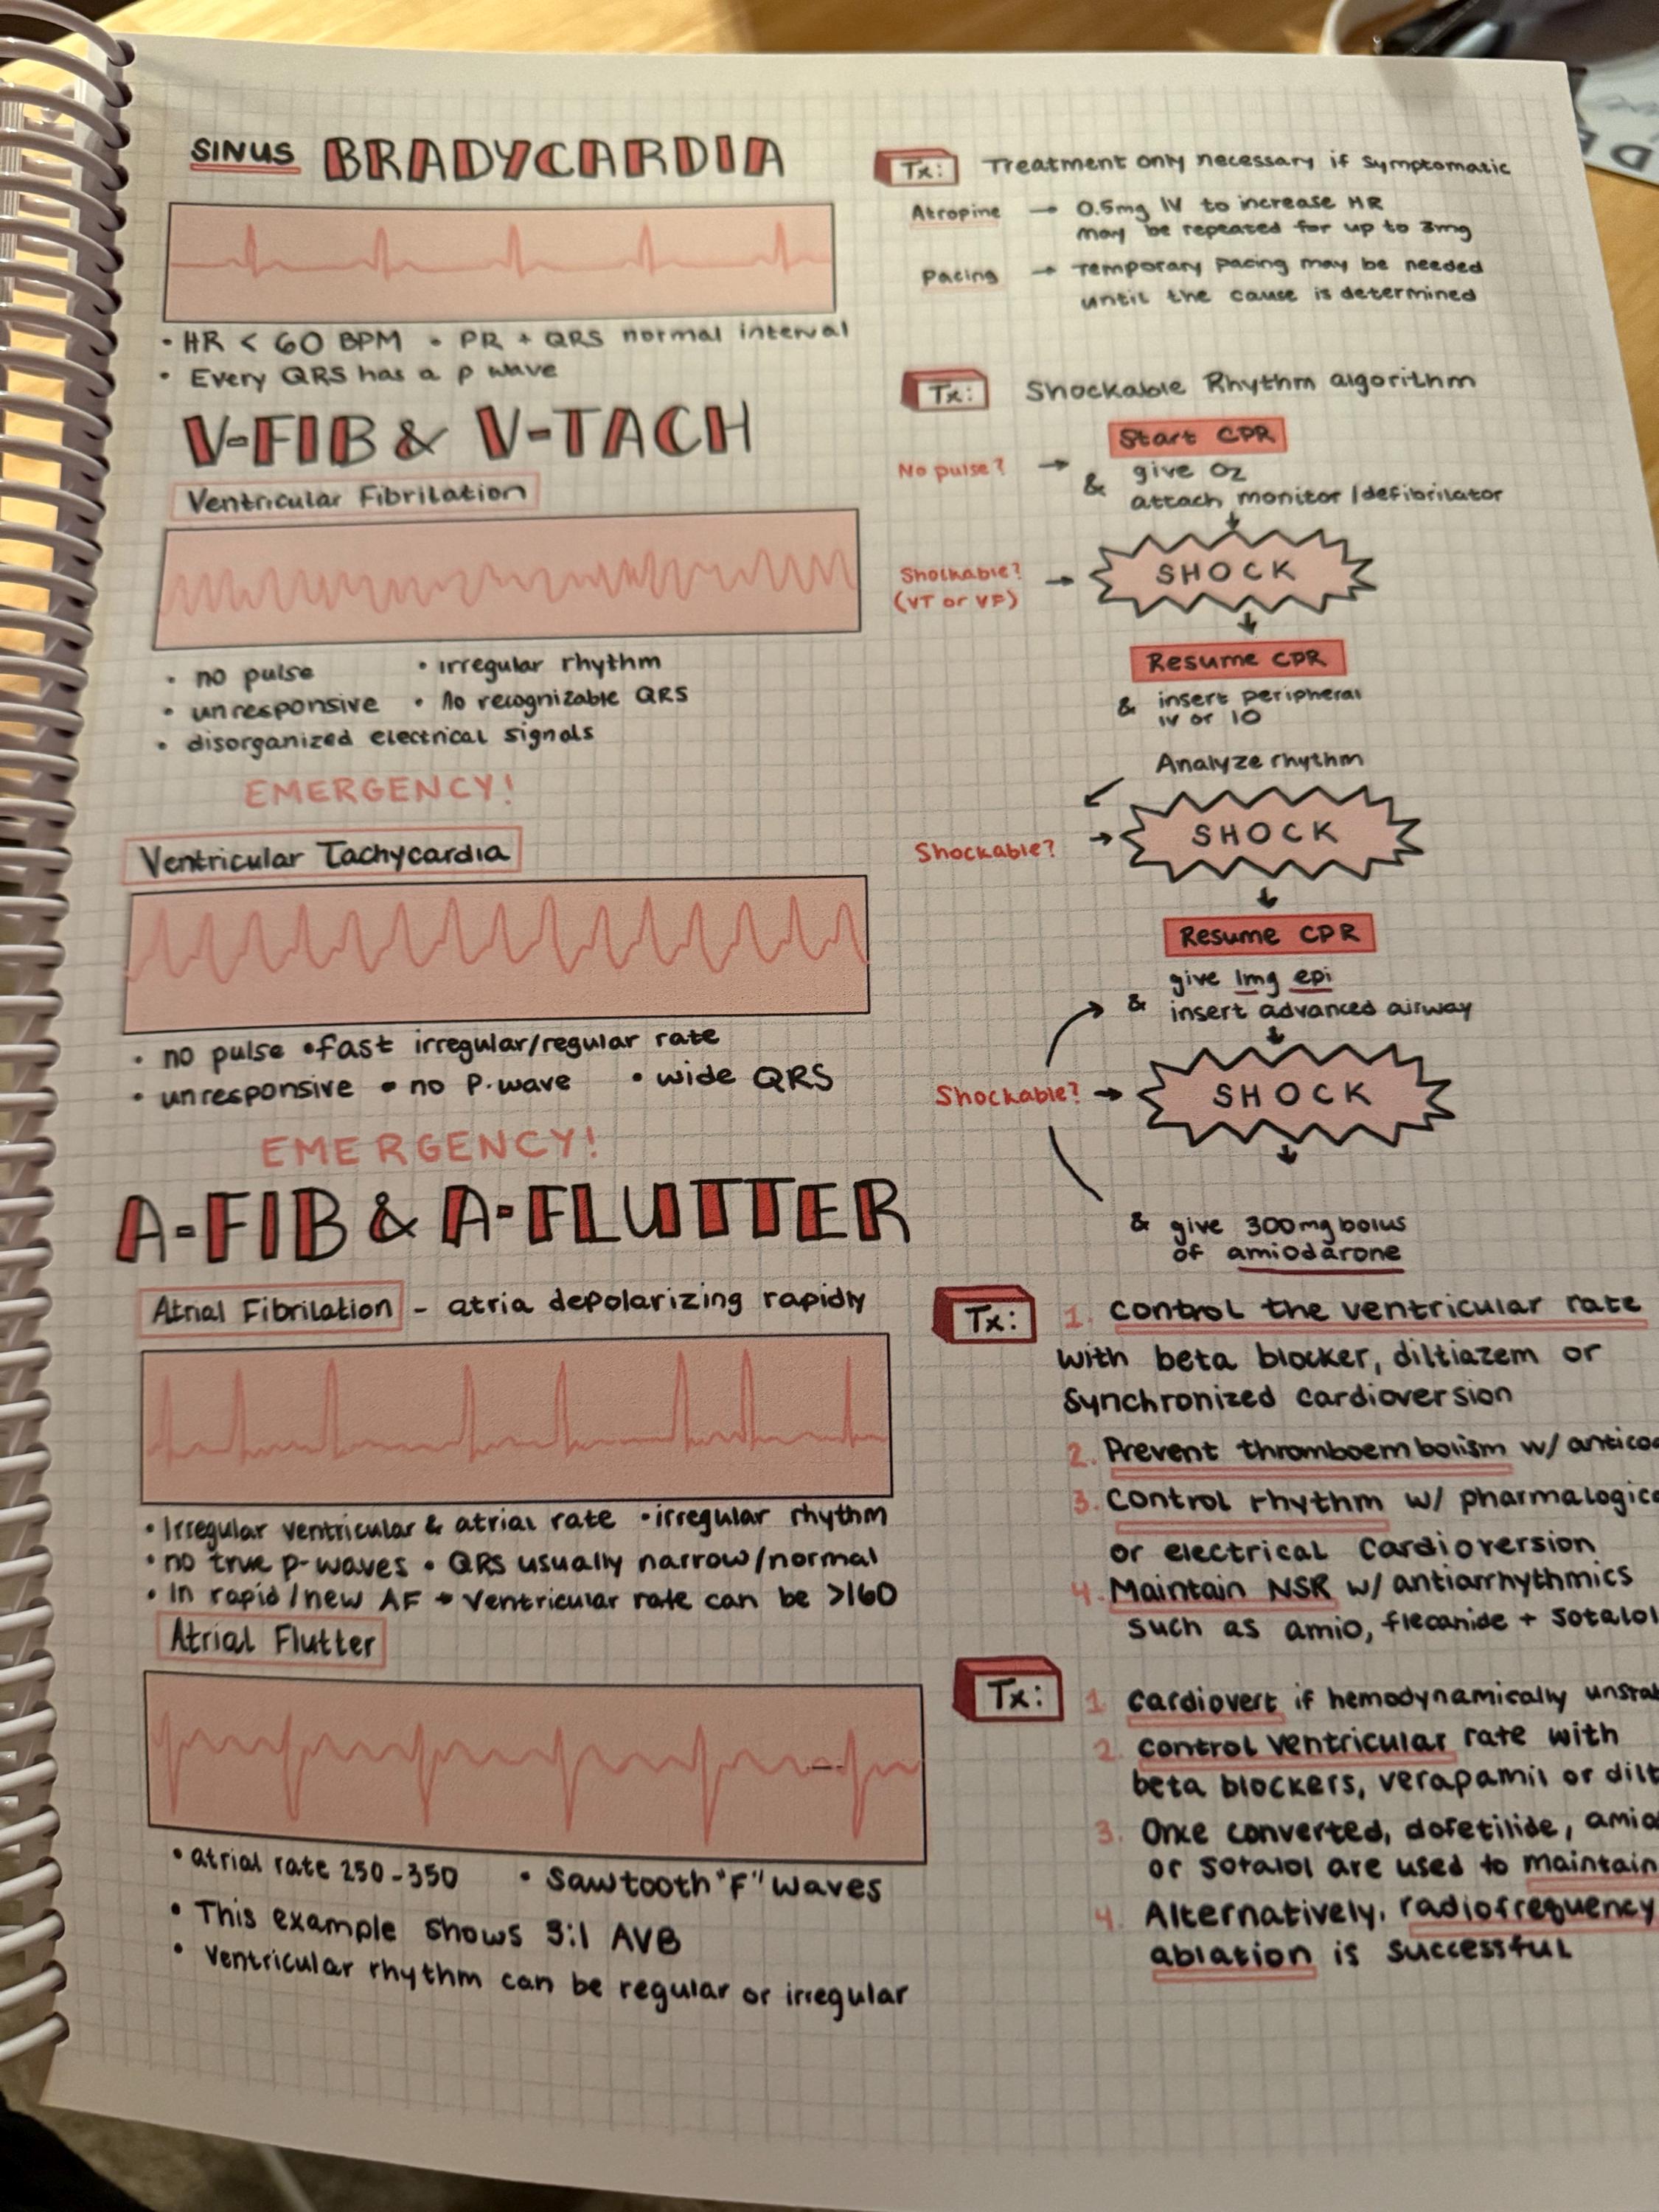 SINUS BRADYCARDIA
• HR < 60 BPM • PR + QRS normal interval
• Every QRS has a p wave
Tx: Treatment only necessary if symptomatic
Atropine → 0.5mg IV to increase HR
may be repeated for up to 3mg
Pacing → Temporary pacing may be needed
until the cause is determined
V-FIB & V-TACH
Ventricular Fibrilation
• no pulse • irregular rhythm
• unresponsive • No recognizable QRS
• disorganized electrical signals
EMERGENCY!
Ventricular Tachycardia
• no pulse • fast irregular/regular rate
• unresponsive • no P-wave • wide QRS
EMERGENCY!
Tx: Shockable Rhythm algorithm
Start CPR
No pulse? → & give O2
attach monitor/defibrilator
Shockable? → SHOCK
(VT or VF)
Resume CPR
& insert peripheral
IV or IO
Analyze rhythm
Shockable? → SHOCK
Resume CPR
& give 1mg epi
insert advanced airway
Shockable? → SHOCK
& give 300mg bolus
of amiodarone
A-FIB & A-FLUTTER
Atrial Fibrilation - atria depolarizing rapidly
• Irregular ventricular & atrial rate • irregular rhythm
• no true p-waves • QRS usually narrow/normal
• In rapid/new AF → Ventricular rate can be >160
Tx: 1. Control the ventricular rate
with beta blocker, diltiazem or
Synchronized cardioversion
2. Prevent thromboembolism w/ anticoa
3. Control rhythm w/ pharmalogica
or electrical cardioversion
4. Maintain NSR w/ antiarrhythmics
such as amio, flecanide + Sotalol
Atrial Flutter
• atrial rate 250-350 • Sawtooth "F" waves
• This example shows 3:1 AVB
• Ventricular rhythm can be regular or irregular
Tx: 1. Cardiovert if hemodynamically unstab
2. Control ventricular rate with
beta blockers, verapamil or dilt
3. Once converted, dofetilide, amio
or sotalol are used to maintain
4. Alternatively, radiofrequency
ablation is successful